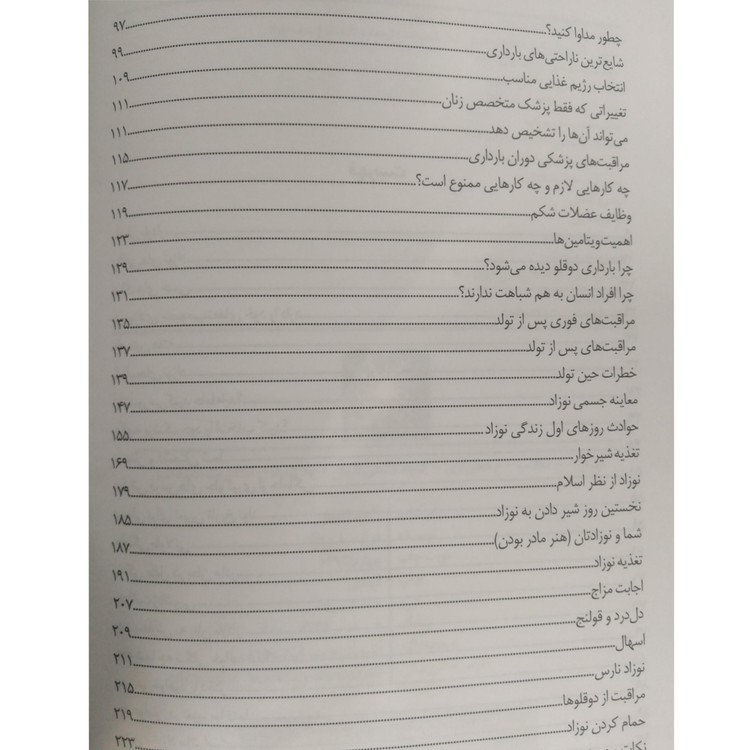 چطور مداوا کنید؟ ........ ۹۷
شایع‌ترین ناراحتی‌های بارداری ........ ۹۹
انتخاب رژیم غذایی مناسب ........ ۱۰۹
تغییراتی که فقط پزشک متخصص زنان ........ ۱۱۱
می‌تواند آن‌ها را تشخیص دهد ........ ۱۱۱
مراقبت‌های پزشکی دوران بارداری ........ ۱۱۵
چه کارهایی لازم و چه کارهایی ممنوع است؟ ........ ۱۱۷
وظایف عضلات شکم ........ ۱۱۹
اهمیت‌ویتامین‌ها ........ ۱۲۳
چرا بارداری دوقلو دیده می‌شود؟ ........ ۱۲۹
چرا افراد انسان به هم شباهت ندارند؟ ........ ۱۳۱
مراقبت‌های فوری پس از تولد ........ ۱۳۵
مراقبت‌های پس از تولد ........ ۱۳۷
خطرات حین تولد ........ ۱۳۹
معاینه جسمی نوزاد ........ ۱۴۷
حوادث روزهای اول زندگی نوزاد ........ ۱۵۵
تغذیه شیرخوار ........ ۱۶۹
نوزاد از نظر اسلام ........ ۱۷۹
نخستین روز شیر دادن به نوزاد ........ ۱۸۵
شما و نوزادتان (هنر مادر بودن) ........ ۱۸۷
تغذیه نوزاد ........ ۱۹۱
اجابت مزاج ........ ۲۰۷
دل‌درد و قولنج ........ ۲۰۹
اسهال ........ ۲۱۱
نوزاد نارس ........ ۲۱۵
مراقبت از دوقلوها ........ ۲۱۹
حمام کردن نوزاد ........ ۲۲۳